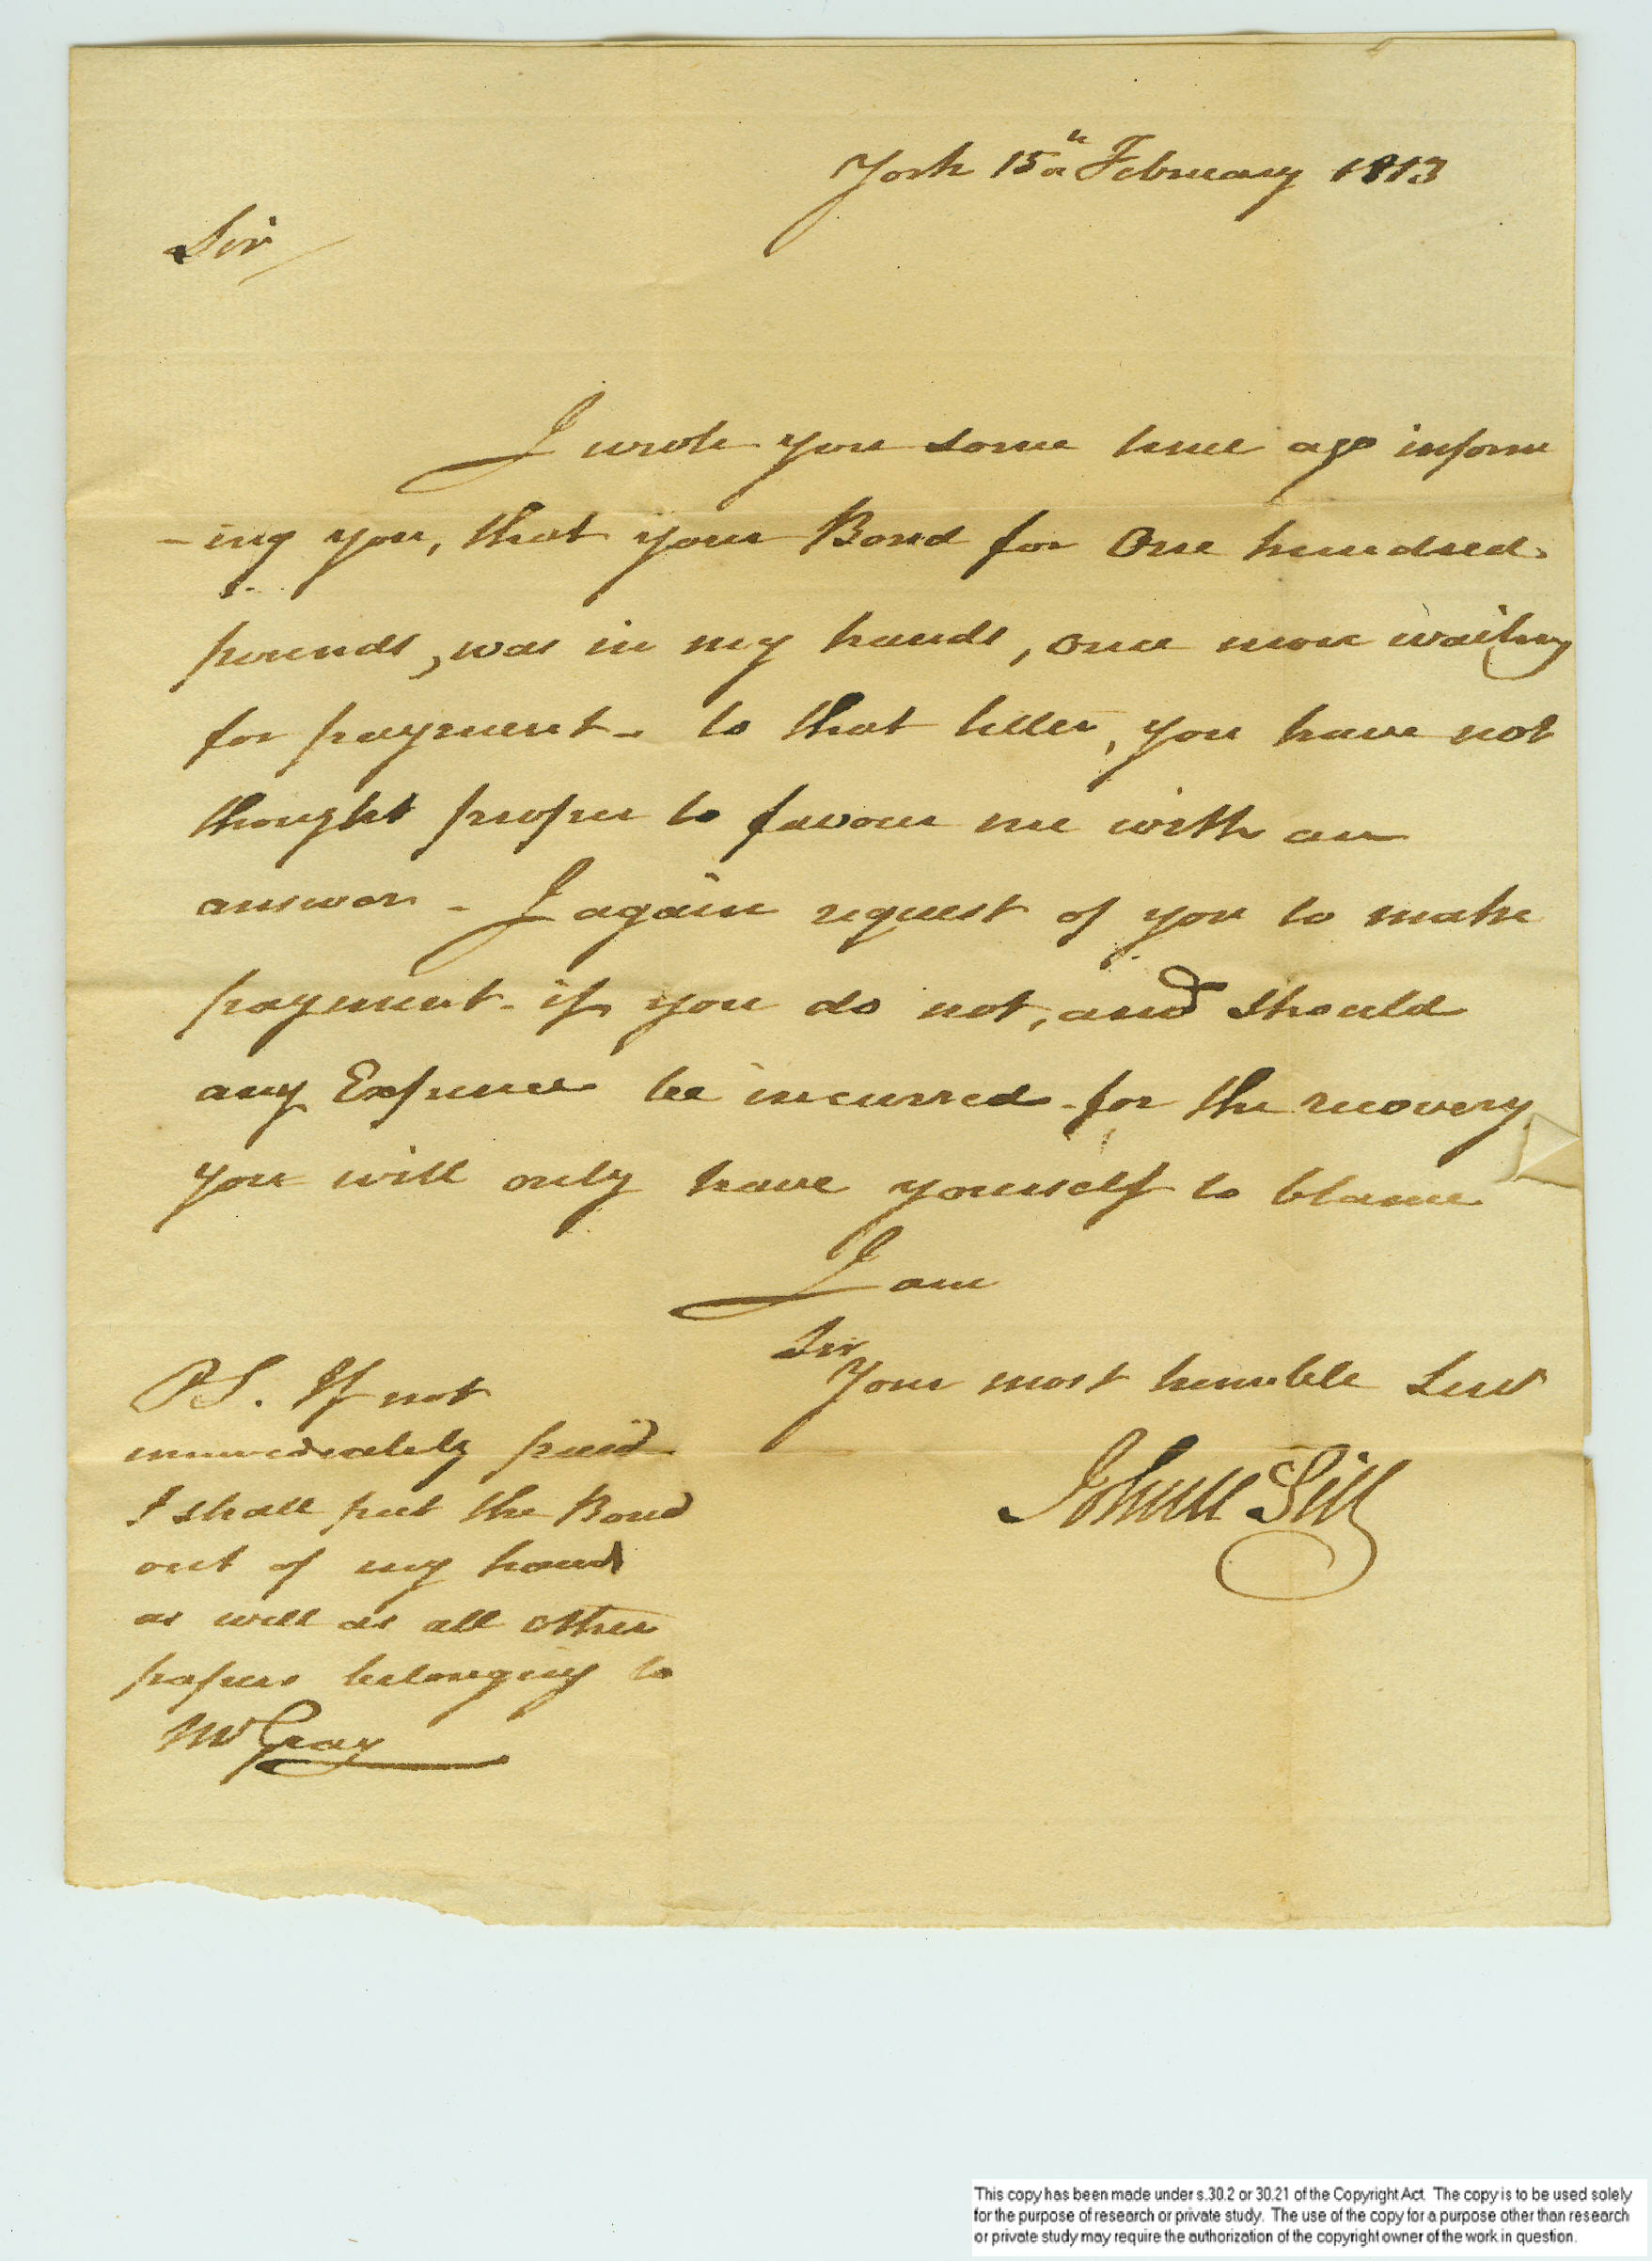 York 15th February 1813
Sir
I wrote you some time ago inform
-ing you, that your Bond for One hundred
pounds, was in my hands, once more waiting
for payment - to that letter, you have not
thought proper to favour me with an
answer - I again request of you to make
payment - if you do not, and should
any Expence be incurred for the recovery
you will only have yourself to blame
I am
Sir
Your most humble Servt
PS. If not
immediately paid
I shall put the Bond
out of my hands
as well as all other
papers belonging to
Mr Gray
This copy has been made under s.30.2 or 30.21 of the Copyright Act. The copy is to be used solely
for the purpose of research or private study. The use of the copy for a purpose other than research
or private study may require the authorization of the copyright owner of the work in question.